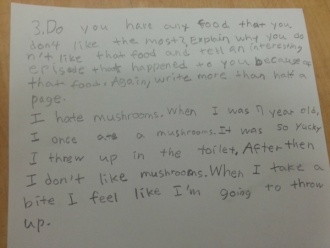 3. Do you have any food that you
don't like the most? Explain why you do
n't like that food and tell an interesing
episode that happened to you because of
that food. Again, write more than half a
page.
I hate mushrooms. When I was 7 year old,
I once ate a mushrooms. It was so yucky
I threw up in the toilet. After then
I don't like mushrooms. When I take a
bite I feel like I'm going to throw
up.